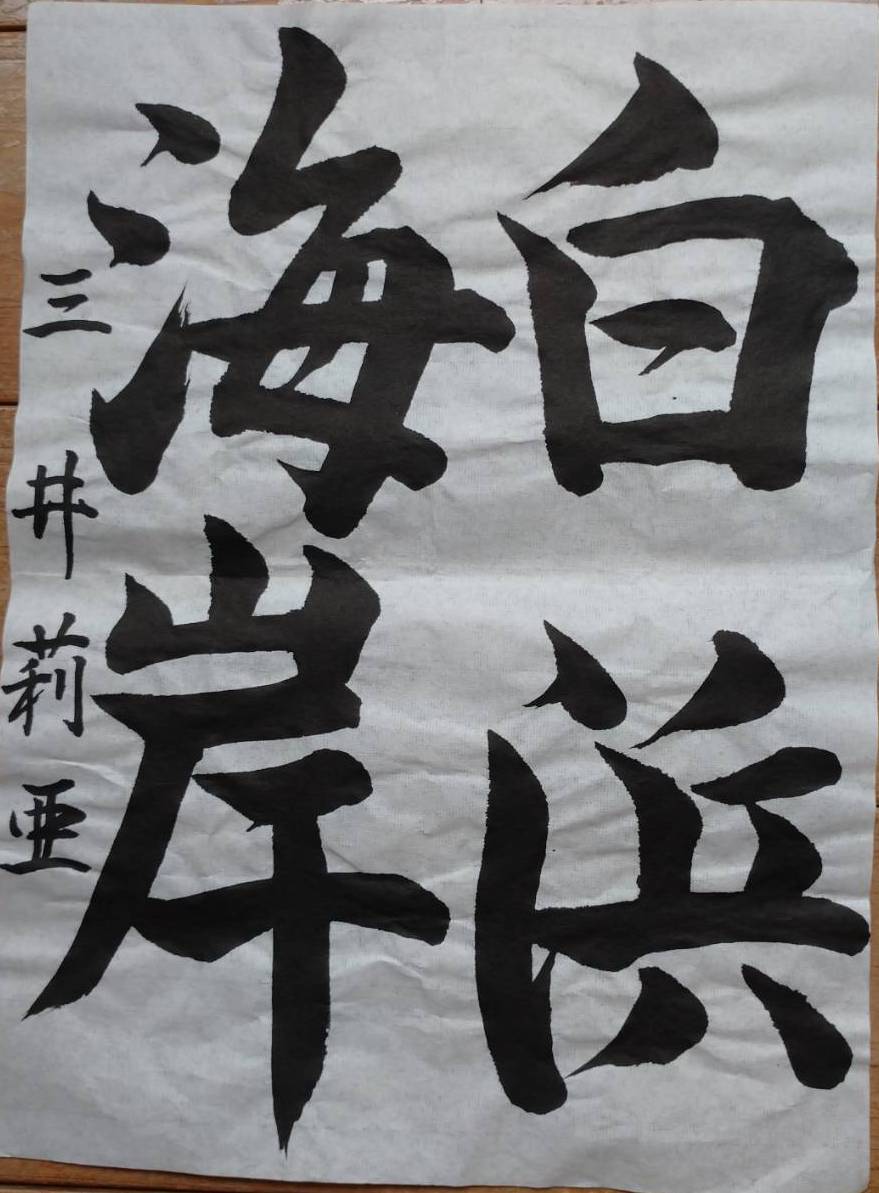 白浜
海岸
三井莉亜